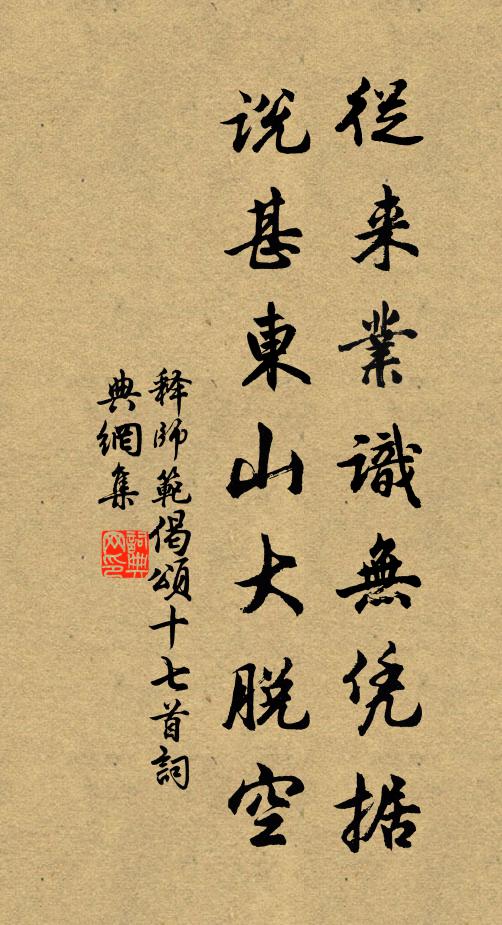 從来業識無凭据
説甚東山大脫空
释師範偈頌十七首詞
典網集
詞典网印